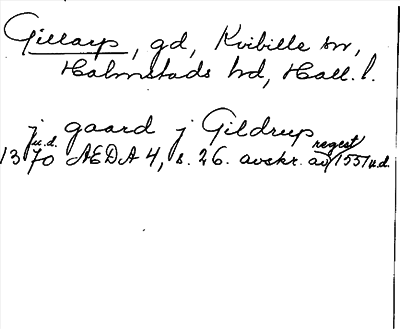 Gillarp, gd, Kvibille sn,
Halmstads hd, Hall. l.
j gaard j Gildrup
1370 u.d. AEDA 4, s. 26. avskr. av regest 1551 u.d.